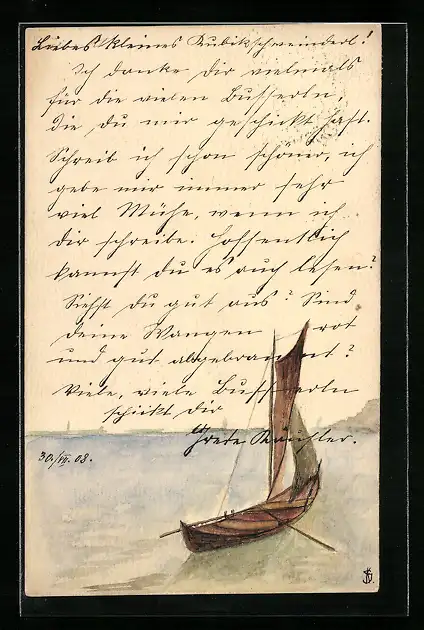 Liebes kleines Rubikschweinderl!
Ich danke Dir vielmals
für die vielen Busserln,
die du mir geschickt hast.
Schreib ich schon schöner, ich
gebe mir immer sehr
viel Mühe, wenn ich
dir schreibe. Hoffentlich
kannst du es auch lesen?
Siehst du gut aus? Sind
deine Wangen rot
und gut abgebrannt?
Viele, viele Busserln
schickt dir
Grete
30./VII. 08.